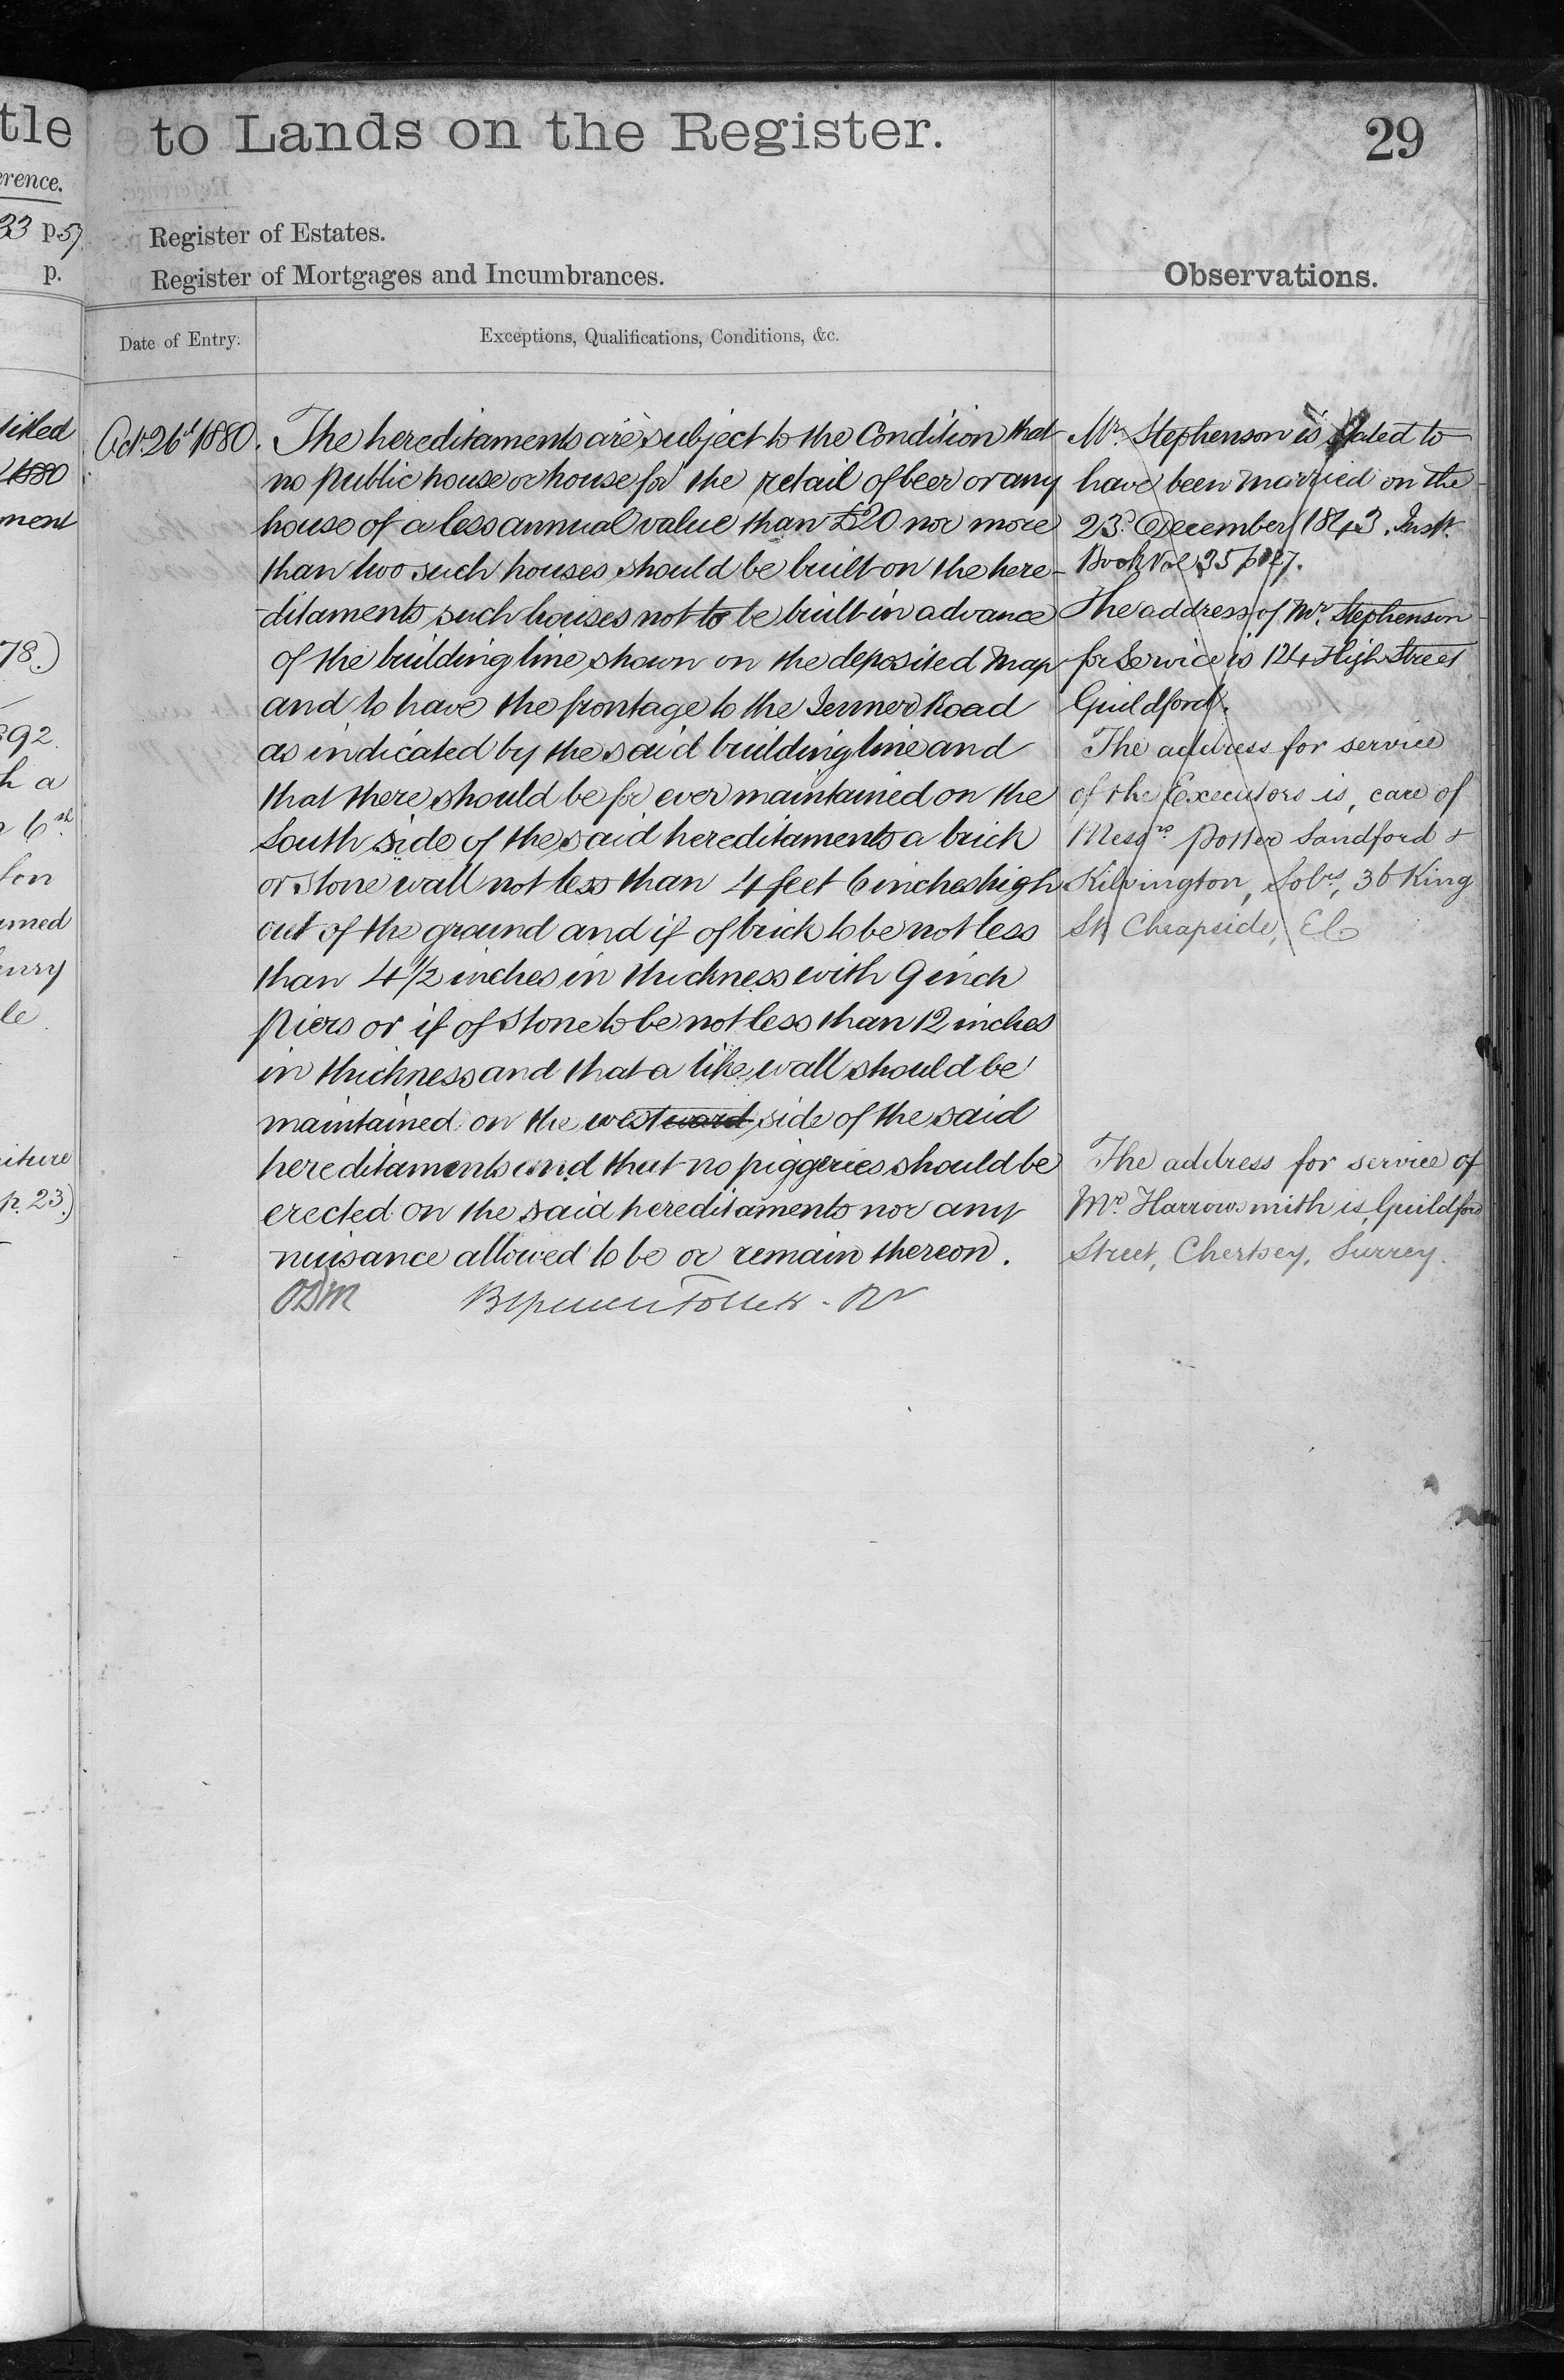 tle
erence.
33 p57
p.
titled
1880
ment
78.)
892.
h a
6th
son
amed
enry
le
p. 23.)
to Lands on the Register.
29
Register of Estates.
Register of Mortgages and Incumbrances.
Observations.
Date of Entry.
Exceptions, Qualifications, Conditions, &c.
Octr. 26th 1880.
The hereditaments are subject to the Condition that
no public house or house for the retail of beer or any
house of a less annual value than £20 nor more
than two such houses should be built on the here-
-ditaments such houses not to be built in advance
of the building line shown on the deposited Map
and to have the frontage to the Jenner Road
as indicated by the said building line and
that there should be for ever maintained on the
South side of the said hereditaments a brick
or stone wall not less than 4 feet 6 inches high
out of the ground and if of brick to be not less
than 4 1/2 inches in thickness with 9 inch
piers or if of stone to be not less than 12 inches
in thickness and that a like wall should be
maintained on the westward side of the said
hereditaments and that no piggeries should be
erected on the said hereditaments nor any
nuisance allowed to be or remain thereon.
Mr. Stephenson is stated to
have been married on the
23d. December 1843. Instt.
Book Vol 35 p
The address of Mr. Stephenson
for Service is 124 High Street
Guildford.
The address for service
of the Executors is, care of
Messrs Potter Sandford &
Kilvington, Solrs, 36 King
St Cheapside, EC
The address for service of
Mr. Harrowsmith is, Guildford
Street, Chertsey, Surrey.